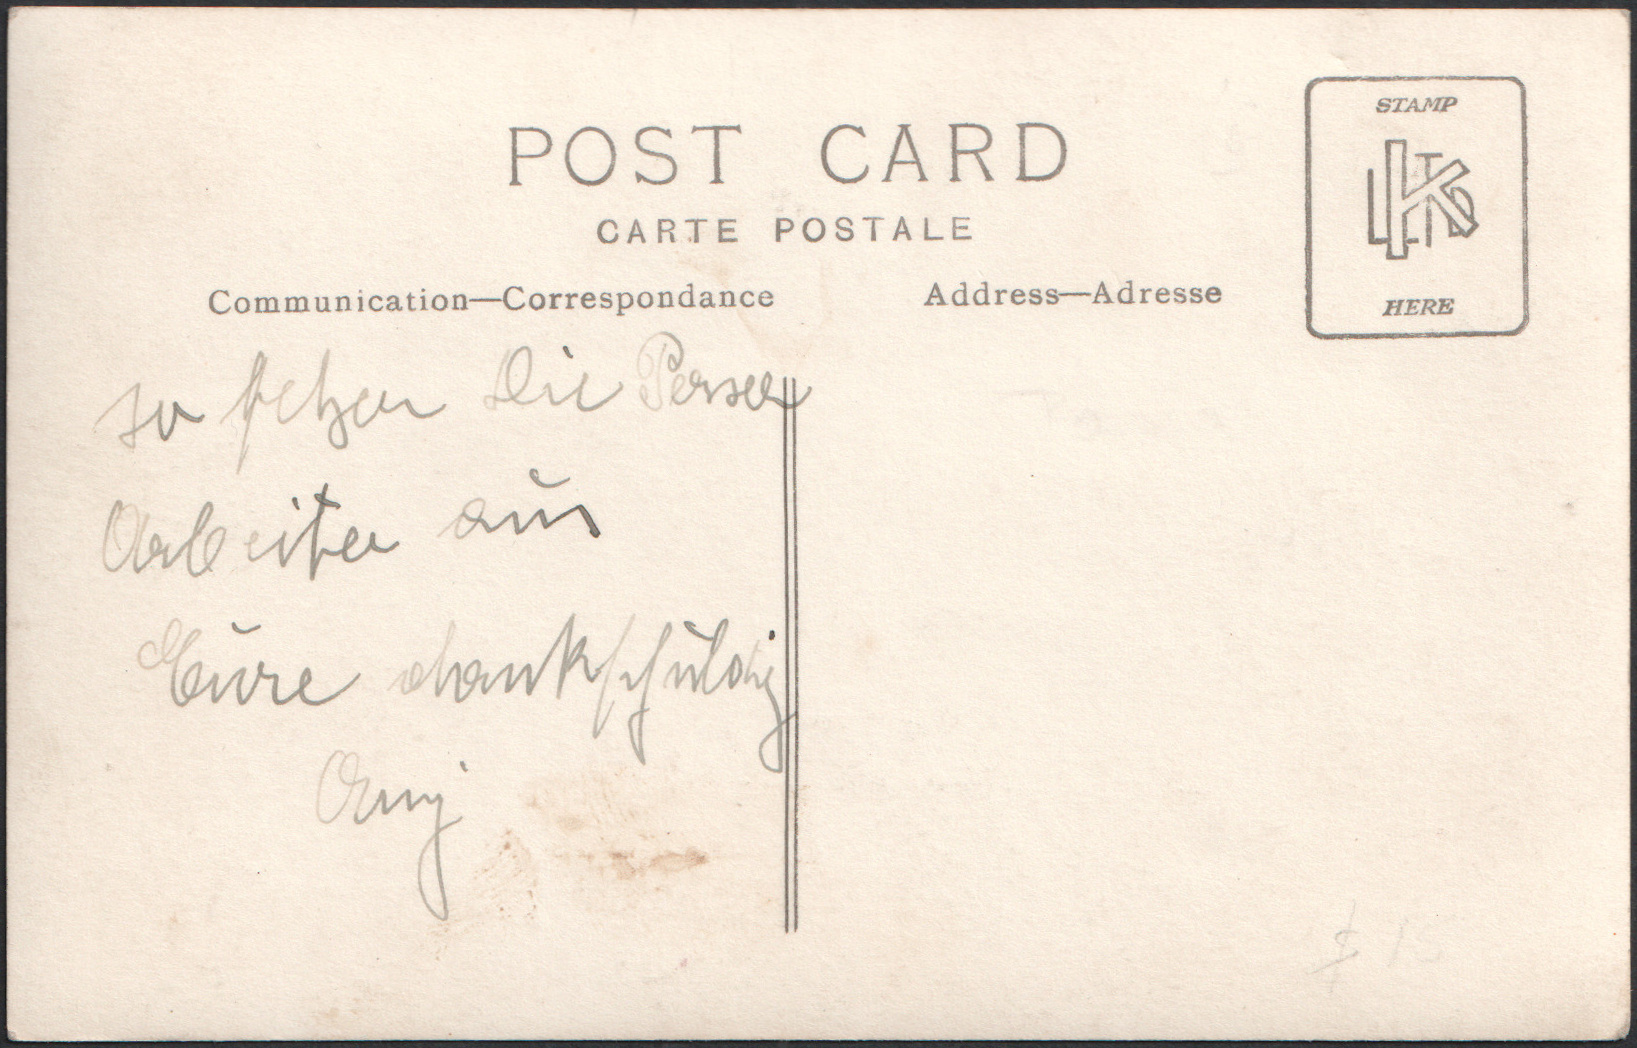 POST CARD
CARTE POSTALE
Communication—Correspondance
Address—Adresse
STAMP
HERE
so sehen die Perser
Arbeiter aus
Eure dankschuldig
$ 15